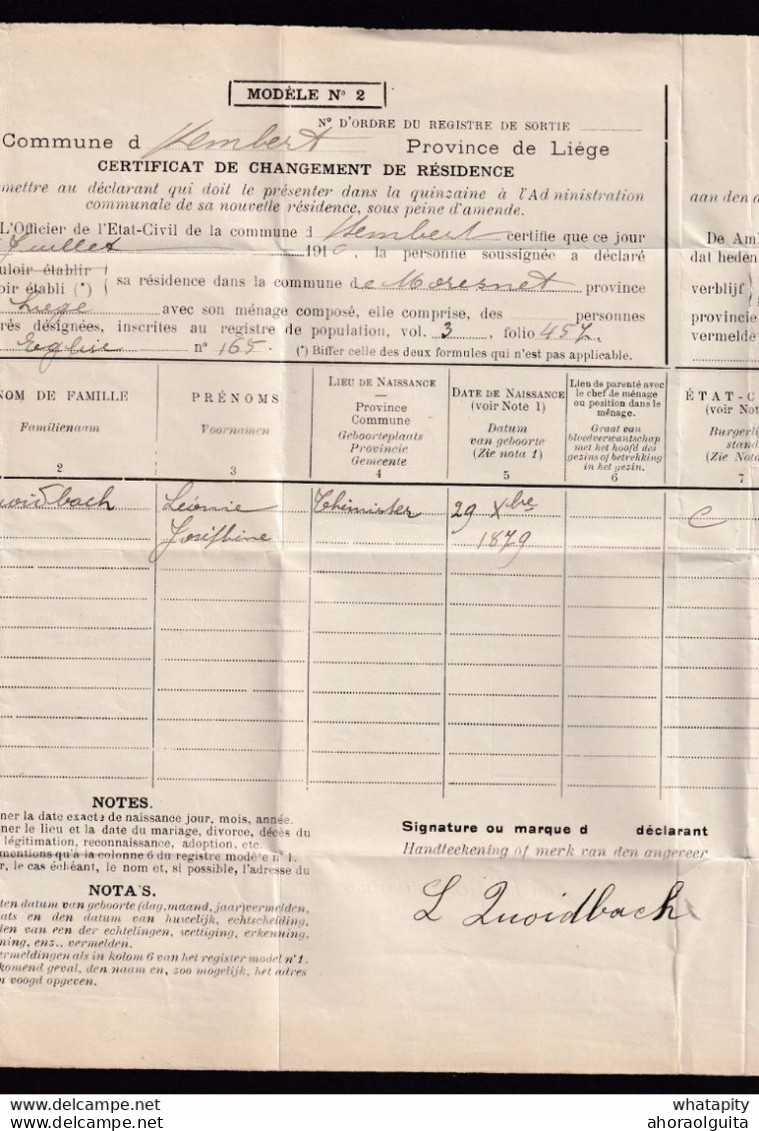 MODÈLE N° 2
N° D'ORDRE DU REGISTRE DE SORTIE
Commune d Hembert Province de Liége
CERTIFICAT DE CHANGEMENT DE RÉSIDENCE
mettre au déclarant qui doit le présenter dans la quinzaine à l'Administration
communale de sa nouvelle résidence, sous peine d'amende.
aan den d
L'Officier de l'Etat-Civil de la commune d Hembert certifie que ce jour
Juillet 1910, la personne soussignée a déclaré
De Aml
dat heden
uloir établir
oir établi (*)
sa résidence dans la commune de Moresnet province
verblijf
Liege avec son ménage composé, elle comprise, des personnes
provincie
rés désignées, inscrites au registre de population, vol. 3, folio 457.
vermelde
Eglise n° 165. (*) Biffer celle des deux formules qui n'est pas applicable.
NOM DE FAMILLE
Familienaam
2
PRÉNOMS
Voornamen
3
LIEU DE NAISSANCE
Province
Commune
Geboorteplaats
Provincie
Gemeente
4
DATE DE NAISSANCE
(voir Note 1)
Datum
van geboorte
(Zie nota 1)
5
Lien de parenté avec
le chef de ménage
ou position dans le
ménage.
Graat van
bloedverwantschap
met het hoofd des
gezins of betrekking
in het gezin.
6
ÉTAT-C
(voir Not
Burgerlij
stand
(Zie Nota
7
uoidbach Léonie Thimister 29 Xbre C
Joséphine 1879
NOTES.
ner la date exacte de naissance jour, mois, année.
ner le lieu et la date du mariage, divorce, décès du
légitimation, reconnaissance, adoption, etc.
mentions qu'à la colonne 6 du registre modèle n° 1.
r, le cas échéant, le nom et, si possible, l'adresse du
NOTA'S.
ten datum van geboorte (dag, maand, jaar) vermelden,
ats en den datum van huwelijk, echtscheiding,
den van een der echtelingen, wettiging, erkenning,
ning, enz., vermelden.
ermeldingen als in kolom 6 van het register model n° 1.
komend geval, den naam en, zoo mogelijk, het adres
n voogd opgeven.
Signature ou marque d déclarant
Handteekening of merk van den angever
L Quoidbach
©Delcampe.net
©Delcampe.net
whatapity
ahoraolguita